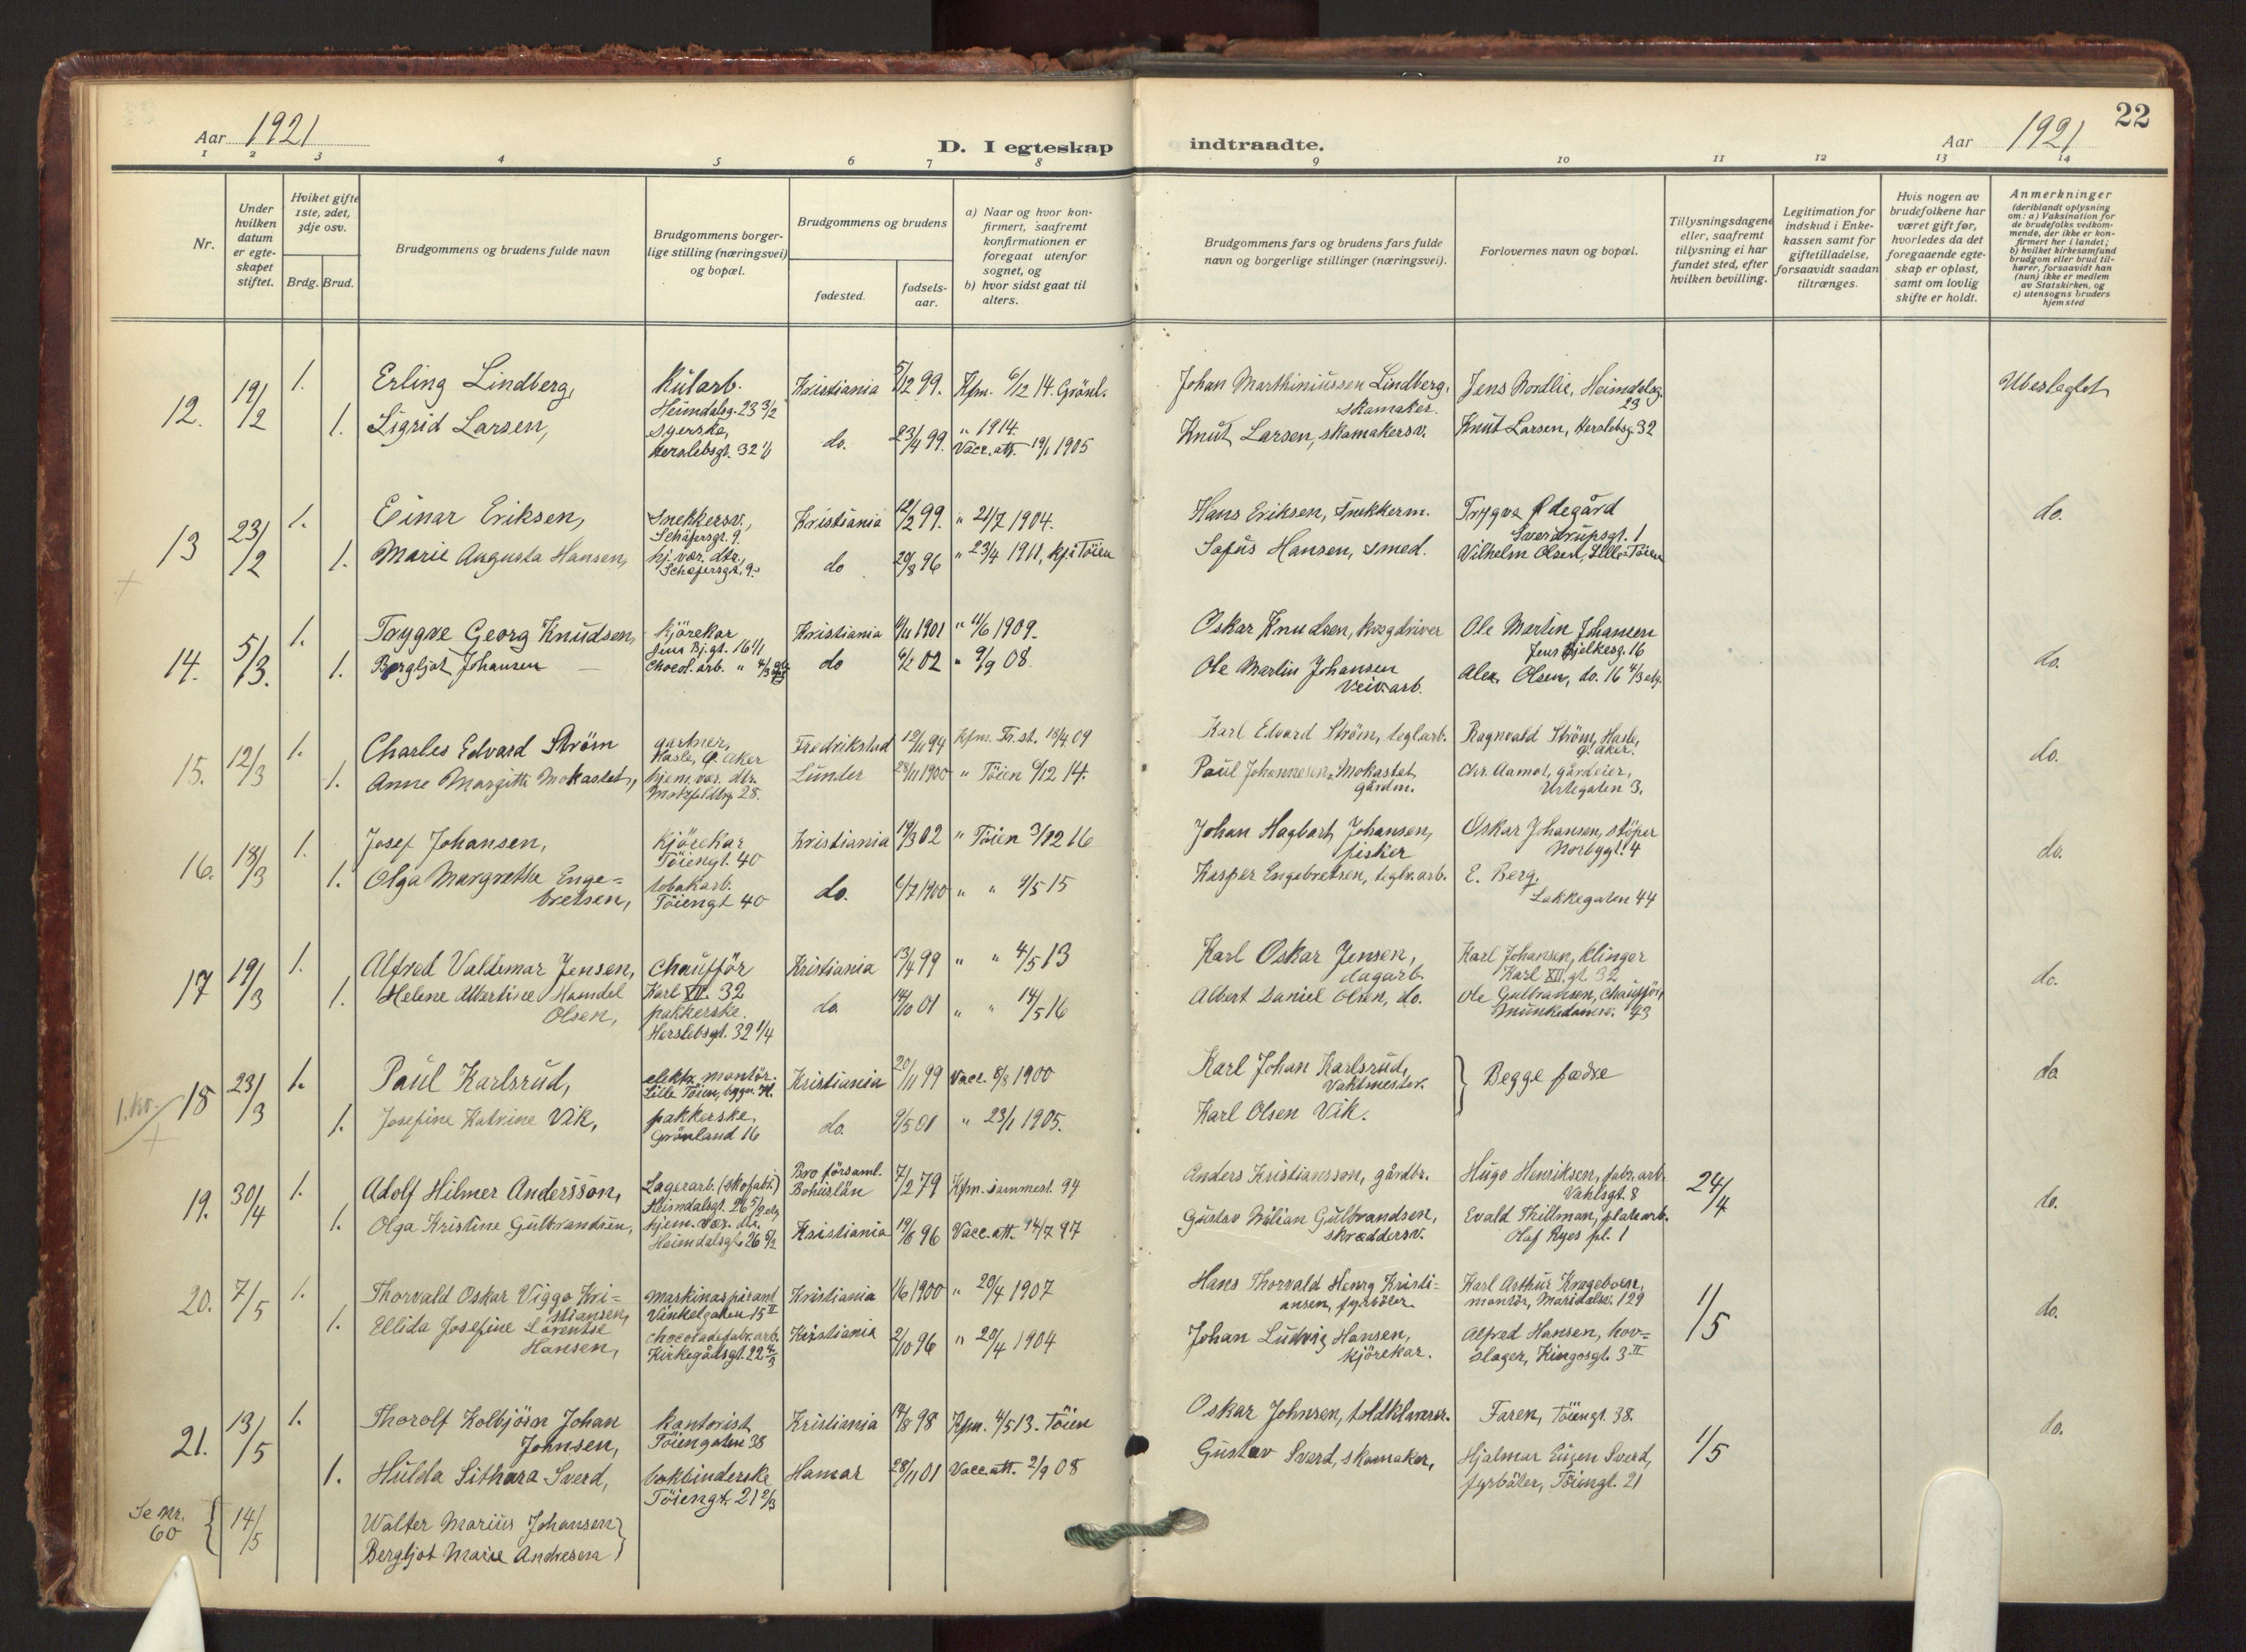 22
Aar 1921
D. I egteskap indtraadte.
Aar 1921
1 2 3 4 5 6 7 8 9 10 11 12 13 14
Nr.
Under hvilken datum er egteskapet stiftet.
Hvilket gifte 1ste, 2det, 3dje osv.
Brdg. Brud.
Brudgommens og brudens fulde navn
Brudgommens borgerlige stilling (næringsvei) og bopæl.
Brudgommens og brudens
fødested.
fødselsaar.
a) Naar og hvor konfirmert, saafremt konfirmationen er foregaat utenfor sognet, og
b) hvor sidst gaat til alters.
Brudgommens fars og brudens fars fulde navn og borgerlige stillinger (næringsvei).
Forlovernes navn og bopæl.
Tillysningsdagene eller, saafremt tillysning ei har fundet sted, efter hvilken bevilling.
Legitimation for indskud i Enkekassen samt for giftetilladelse, forsaavidt saadan tiltrænges.
Hvis nogen av brudefolkene har været gift før, hvorledes da det foregaaende egteskap er opløst, samt om lovlig skifte er holdt.
Anmerkninger
(deriblandt oplysning om: a) Vaksination for de brudefolks vedkommende, der ikke er konfirmert her i landet; b) hvilket kirkesamfund brudgom eller brud tilhører, forsaavidt han (hun) ikke er medlem av Statskirken, og c) utensogns bruders hjemsted
12. 19/2 1. Erling Lindberg, Kularb. Heimdalsg. 23 3/2 Kristiania 5/12 99. Kfm. 6/12 14. Grönl. Johan Marthiniussen Lindberg, skomaker. Jens Nordlie, Heimdalsg. 23 Ubeslegtet
1. Sigrid Larsen, syerske, Herslebsgt. 32 1/1 do. 23/4 99. " 1914. Vacc. att. 19/1 1905 Knut Larsen, skomakersv. Knut Larsen, Herslebsg. 32
13 23/2 1. Einar Eriksen, Snekkersv., Schäfersgt. 9. Kristiania 12/2 99. " 21/7 1904. Hans Eriksen, snekkerm. Trygve Ødegård Sverdrupsgt. 1 do.
1. Marie Augusta Hansen, hj. vær. dtr., Schäfersgt. 9. do 20/8 96 " 23/4 1911, kfi Töien Sofus Hansen, smed. Vilhelm Olsen, Lille-Töien
14. 5/3. 1. Trygve Georg Knudsen, kjörekar Jens Bj. gt. 16 1/1 Kristiania 1901 " 11/6 1909. Oskar Knudsen, Ole Martin Johansen Jens Bjelkesg. 16
1. Bergljot Johansen — Chocol. arb. " 4/3 do 02 " 9/9 08. Ole Martin Johansen Veivarb. Alex. Olsen, do. 16 4/3 etg. do.
15. 12/3 1. Charles Edvard Ström gartner, Hasle, Ø. Aker Fredrikstad 12/11 94 Kfm. Fr.st. 18/4 09 Karl Edvard Ström, teglarb. Ragnvald Ström, Hasle, Ø. Aker. do.
1. Anne Margitte Mokastet, hjem. vær. dtr. Motzfeldtsg. 28. Lunder 28/11 1900 " Töien 6/12 14. Paul Johannesen Mokastet gårdm. Chr. Aamot, gårdeier, Urtegaten 3.
16. 18/3 1. Josef Johansen, kjörekar Töiengt. 40 Kristiania 19/3 02 " Töien 3/12 16 Johan Hagbart Johansen, fisker Oskar Johansen, stöper Norbygt. 4 do.
1. Olga Margrethe Engebretsen, tobakarb. Töiengt 40 do. 6/7 1900 " " 9/5 15 Kasper Engebretsen, teglv. arb. E. Berg, Lakkegaten 44
17 19/3 1. Alfred Valdemar Jensen, chaufför Karl XII. 32 Kristiania 13/4 99 " " 4/5 13 Karl Oskar Jensen, dagarb. Karl Johansen, klinger Karl XII gt. 32 do.
1. Helene Albertine Hamdel Olsen, pakkerske. Herslebsgt. 32 1/4 do. 14/10 01 " " 14/5 16 Albert Daniel Olsen, do. Ole Gulbransen, chauffør, Munkedamsv. 43
1. ko. 18 23/3 1. Paul Karlsrud, elektr. montör. Lille Töien, bygn. H. Kristiania 20/11 99 Vacc. 8/8 1900 Karl Johan Karlsrud, Vaktmester. Begge fædre do
1. Josefine Katrine Vik, pakkerske, Grönland 16 do. 9/5 01 " 23/1 1905. Karl Olsen Vik.
19. 30/4 1. Adolf Hilmer Andersson, Lagerarb. (skofabr.) Heimdalsgt. 26 5/2 etg. Bro församl. Bohuslän 7/2 79 Kfm. i sammest. 94 Anders Kristiansson, gårdbr. Hugo Henriksen, fabr. arb. Vahlsgt. 8 24/4 do.
1. Olga Kristine Gulbrandsen, hjem. vær. dtr. Heimdalsgt. 26 5/2 Kristiania 19/8 96 Vacc. att. 14/7 97 Gustav Wilian Gulbrandsen, skræddersv. Evald Thillman, platearb. Olaf Ryes pl. 1
20. 7/5 1. Thorvald Oskar Viggo Kristiansen, maskinaspirant Vinkelgaten 15 II Kristiania 1/6 1900 " 20/4 1907 Hans Thorvald Henrg Kristiansen, fyrböter Karl Arthur Krageboen, montör, Maridalsv. 129 1/5 do.
1. Ellida Josefine Laventse Hansen, chocoladefabr. arb. Kirkegårdsgt. 22 4/3 Kristiania 2/10 96 " 20/4 1904 Johan Ludvig Hansen, kjörekar. Alfred Hansen, hovslager, Kingosgt. 3 II
21. 13/5 1. Thorolf Kolbjörn Johan Johnsen, kontorist Töiengaten 38 Kristiania 14/8 98 Kfm. 4/5 13. Töien Oskar Johnsen, toldklarerer. Faren, Töiengt. 38. 1/5 do.
1. Hulda Sithara Sverd, bokbinderske Töiengt. 21 2/3 Hamar 28/11 01 Vacc. att. 2/9 08 Gustav Sverd, skomaker, Hjalmar Eugen Sverd, fyrböter, Töiengt. 21
Se Nr. 60 14/5 Walter Marius Johansen
Bergljot Marie Andresen